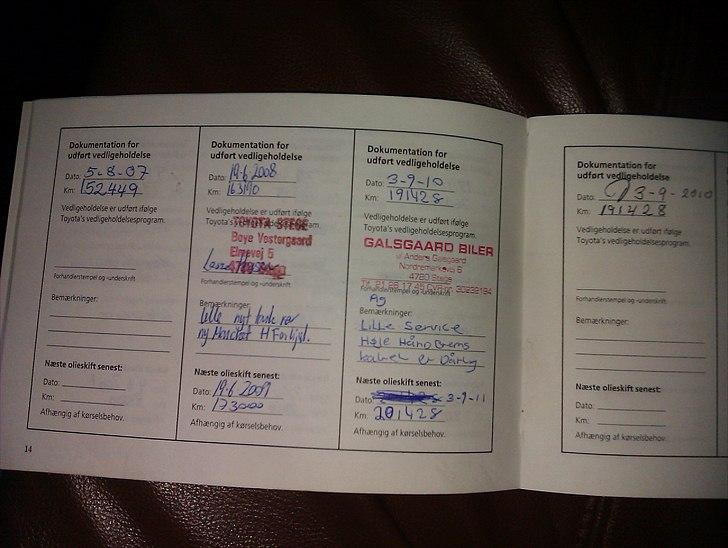 Dokumentation for
udført vedligeholdelse
Dato: 5-8-07
Km: 152449
Vedligeholdelse er udført ifølge
Toyota's vedligeholdelsesprogram.
Forhandlerstempel og -underskrift
Bemærkninger:
Næste olieskift senest:
Dato:
Km:
Afhængig af kørselsbehov.
14
Dokumentation for
udført vedligeholdelse
Dato: 19-6 2008
Km: 163190
Vedligeholdelse er udført ifølge
Toyota's vedligeholdelsesprogram.
TOYOTA STEGE
Bøye Vestergaard
Elmevej 5
4780 Stege
Forhandlerstempel og -underskrift
Bemærkninger:
Lille nyt
ny H
Næste olieskift senest:
Dato: 19-6 2009
Km: 173000
Afhængig af kørselsbehov.
Dokumentation for
udført vedligeholdelse
Dato: 3-9-10
Km: 191428
Vedligeholdelse er udført ifølge
Toyota's vedligeholdelsesprogram.
GALSGAARD BILER
v/ Anders Galsgaard
Nordremarksvej 6
4780 Stege
Tlf. 21 26 17 45 CVR-nr. 30238194
Forhandlerstempel og -underskrift
Ag
Bemærkninger:
Lille Service
Høje Hånd Brems
kabel er Dårlig
Næste olieskift senest:
Dato: 3-9-11
Km: 201428
Afhængig af kørselsbehov.
Dokumentation for
udført vedligeholdelse
Dato: 3-9-2010
Km: 191428
Vedligeholdelse er udført ifølge
Toyota's vedligeholdelsesprogram.
Forhandlerstempel og -underskrift
Bemærkninger:
Næste olieskift senest:
Dato:
Km:
Afhængig af kørselsbehov.